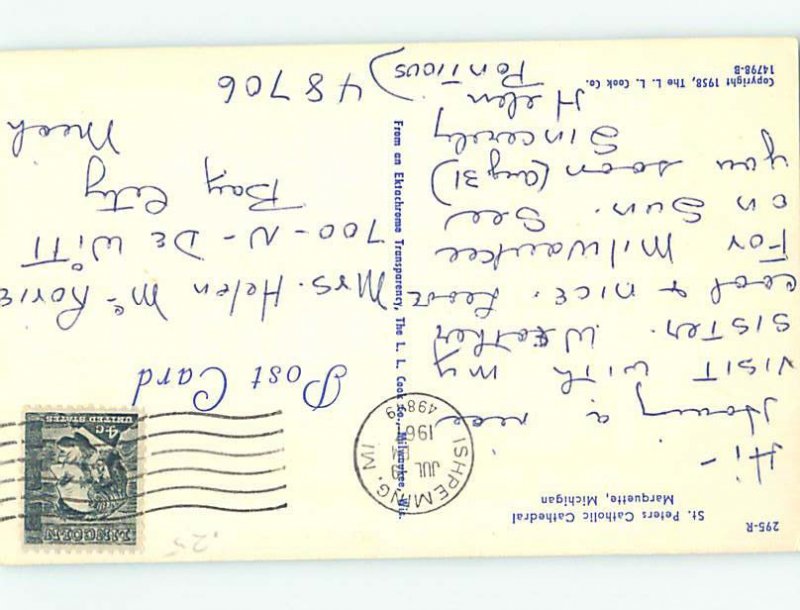 295-R
St. Peters Catholic Cathedral
Marquette, Michigan
Hi-
Having a nice
VISIT WITH my
SISTER. Weather
cool & nice. Leave
For Milwaukee
on Sun. See
you soon (Aug 31)
Sincerely
Helen
Pontious)
Copyright 1958, The L. L. Cook Co.
14798-B
From an Ektachrome Transparency, The L. L. Cook Co., Milwaukee, Wis.
ISHPEMING, MI
JUL
196
49849
LINCOLN
4c UNITED STATES
Post Card
Mrs. Helen Mc Rorie
700-N-DeWitt
Bay City
Mech
48706
.25